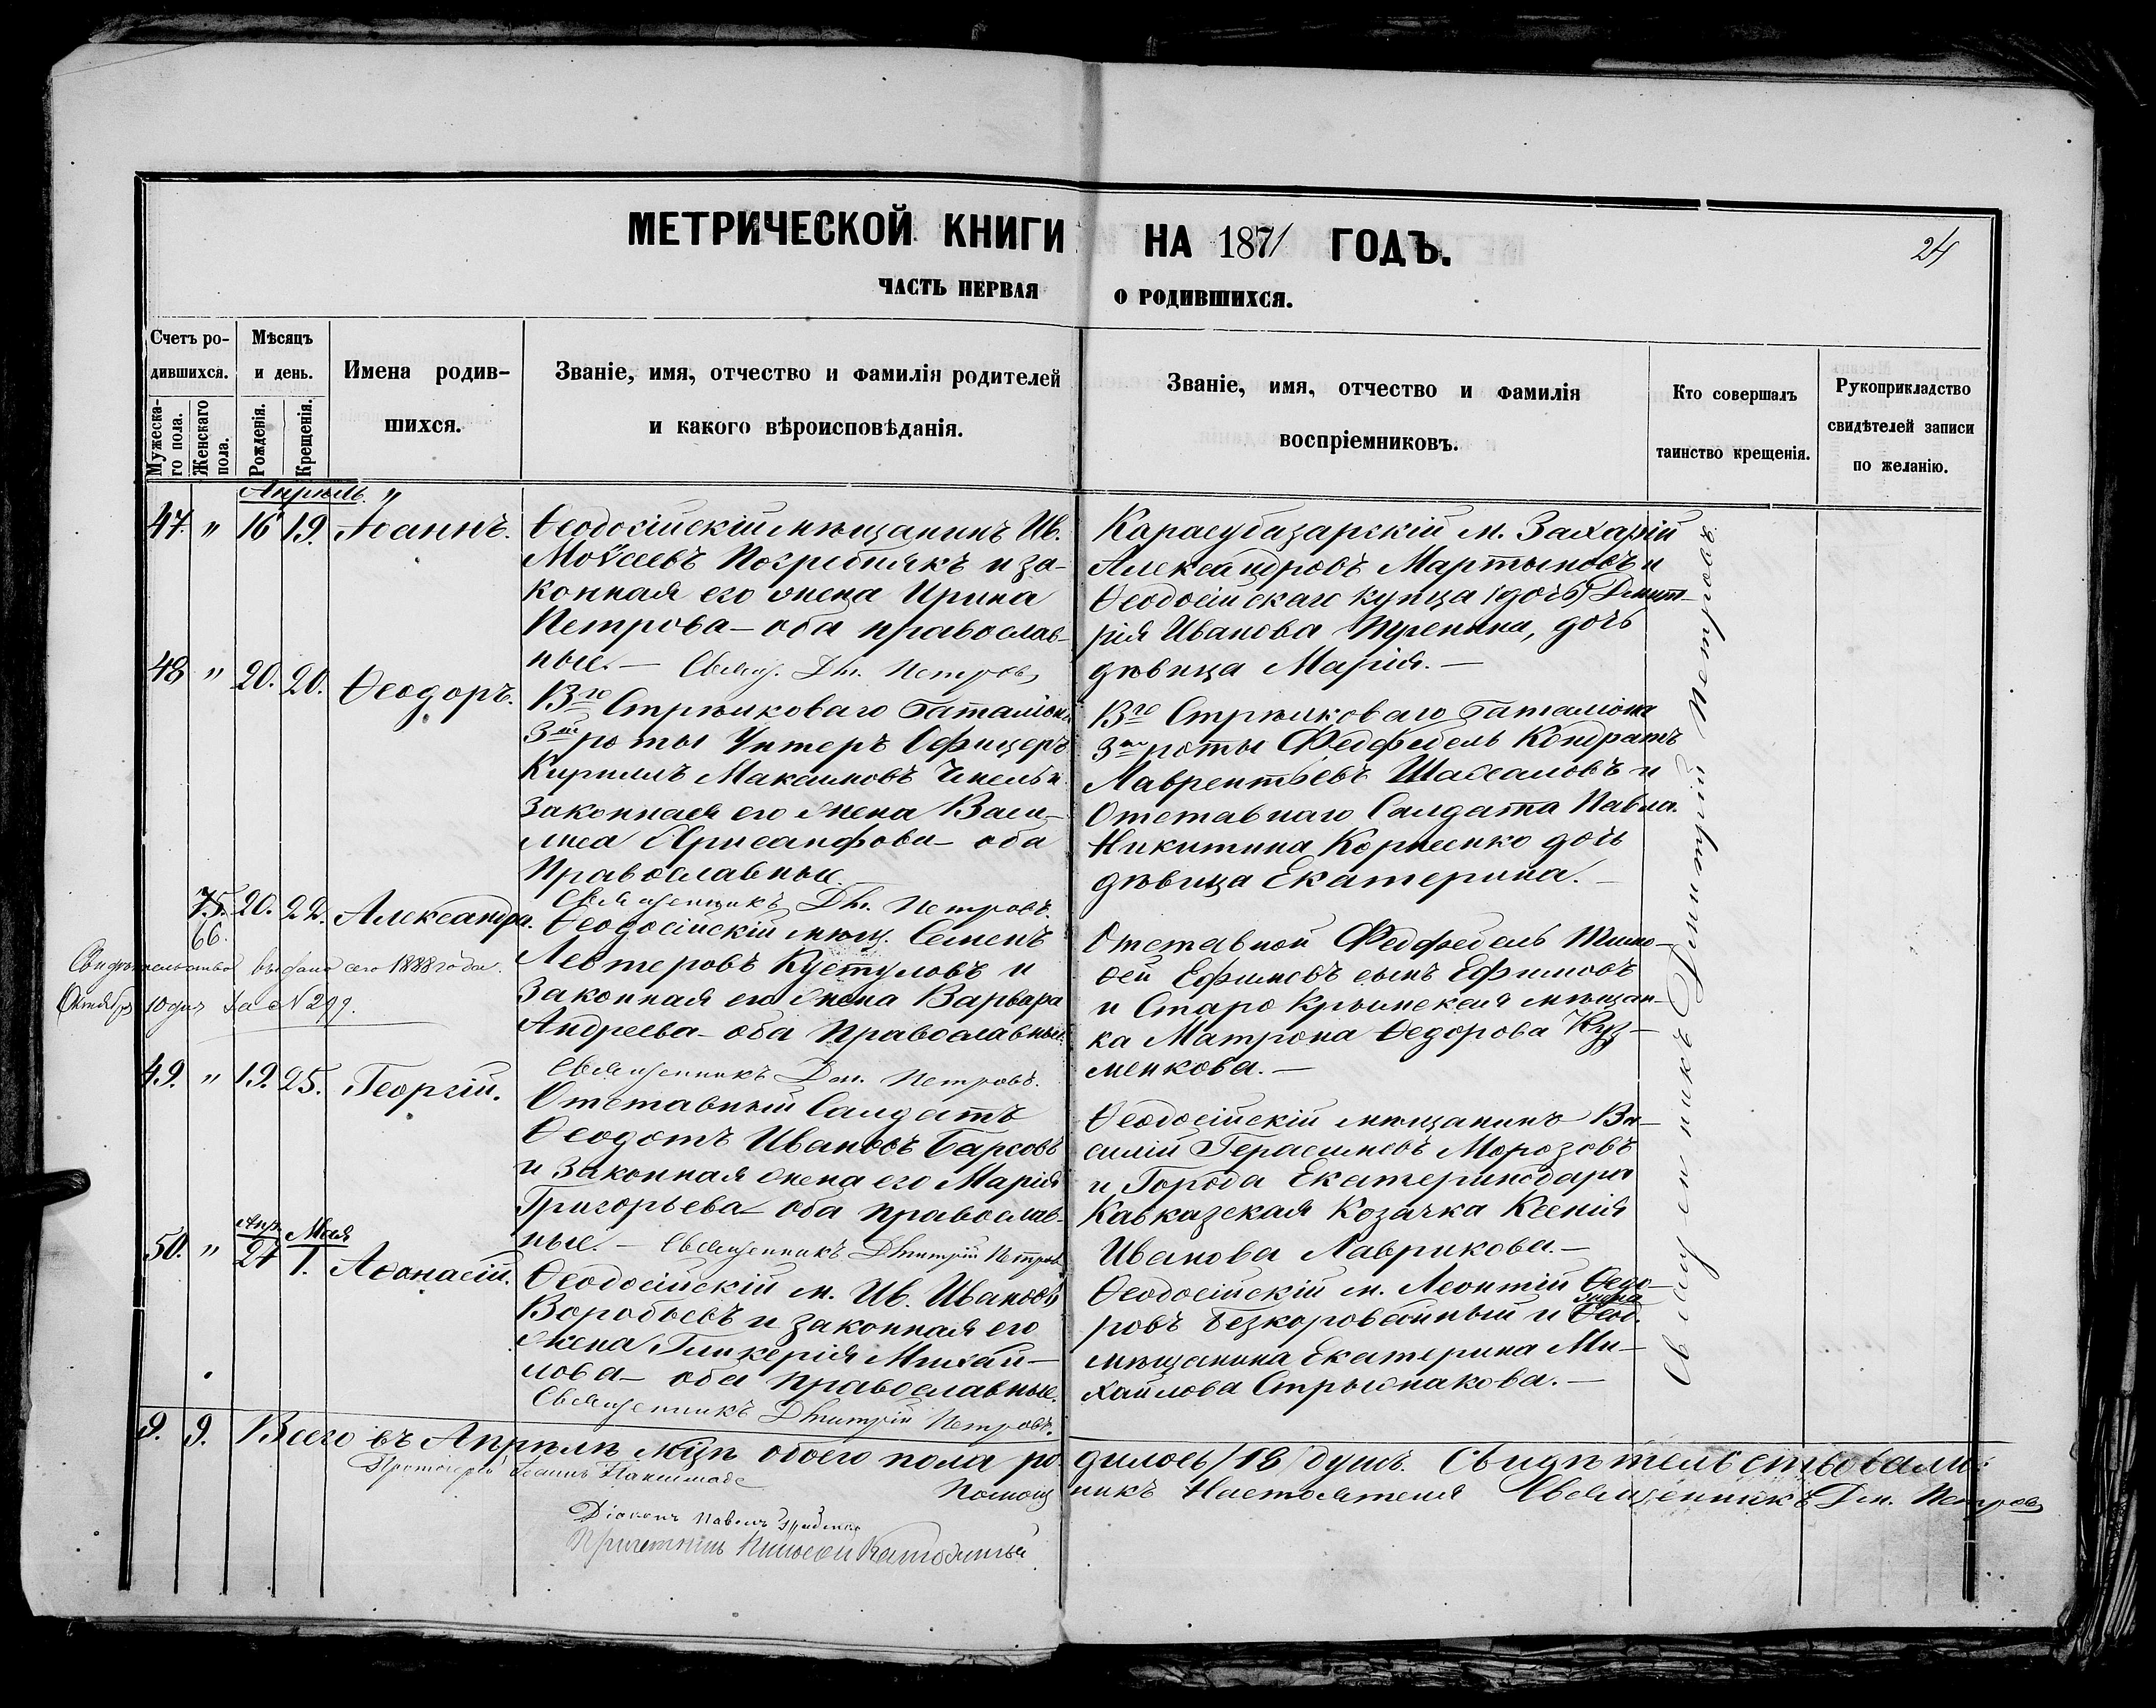 МЕТРИЧЕСКОЙ КНИГИ НА 1871 ГОДЪ.
24
ЧАСТЬ ПЕРВАЯ О РОДИВШИХСЯ.
Счетъ ро-
дившихся.
Мужеска-
го пола.
Женскаго
пола.
Мѣсяцъ
и день.
Рожденія.
Крещенія.
Имена родив-
шихся.
Званіе, имя, отчество и фамилія родителей
и какого вѣроисповѣданія.
Званіе, имя, отчество и фамилія
воспріемниковъ.
Кто совершалъ
таинство крещенія.
Рукоприкладство
свидѣтелей записи
по желанію.
Апрѣль. "
47. " 16 19. Іоаннъ.
Ѳеодосійскій мѣщанинъ Ив.
Моѵсеевъ Погребнякъ и за-
конная его жена Ирина
Петрова - оба православ-
ные. - Священ. Дм. Петровъ
Карасубазарскій м. Захарій
Александровъ Мартыновъ и
Ѳеодосійскаго купца (дочь) Дмит-
рія Иванова дочь
дѣвица Марія. -
48 " 20. 20. Ѳеодоръ.
13го Стрѣлковаго баталіона
3й роты Унтеръ Офицеръ
Кириллъ Максимовъ и
законная его жена Васи-
лиса Хрисанфова - оба
Православные
Священникъ Дм. Петровъ.
13го Стрѣлковаго баталіона
3й роты Фелдфебель Кондратъ
Лаврентьевъ и
Отставнаго Салдата Павла
Никитина Корніенко дочь
дѣвица Екатерина. -
75. 20. 22. Александра.
66.
Свидѣтельство выдано сего 1888 года
Октября 10 дня за № 299.
Ѳеодосійскій мѣщ. Семенъ
Лефтеровъ Кустуловъ и
законная его жена Варвара
Андреева - оба православные.
Священникъ Дм. Петровъ.
Отставной Фелдфебель Тимо-
ѳей Ефимовъ сынъ Ефимовъ
и Старо Крымская мѣщан-
ка Матрона Ѳедорова Куз-
менкова. -
49. " 19. 25. Георгій.
Отставный Салдатъ
Ѳеодотъ Ивановъ Барсовъ
и законная жена его Марія
Григорьева - оба православ-
ные. - Священникъ Дмитрій Петровъ
Ѳеодосійскій мѣщанинъ Ва-
силій Герасимовъ Морозовъ
и Города Екатеринодара
Кавказская Козачка Ксенія
Иванова Лаврикова. -
Апр. Мая
50. " 27 1. Аѳанасій.
Ѳеодосійскій м. Ив. Ивановъ
Воробьевъ и законная его
жена Гликерія Михай-
лова - оба православные.
Священникъ Дмитрій Петровъ.
Ѳеодосійскій м. Леонтій Ѳедо-
ровъ Безкоровайный и Ѳеод.
мѣщанина Екатерина Ми-
хайлова Стрыжакова. -
Священникъ Дмитрій Петровъ.
9. 9. Всего въ Апрѣлѣ мцѣ обоего пола родилось /18/ душъ. Свидѣтельствовали:
Протоіерей Іоаннъ
Помощникъ Настоятеля Священникъ Дм. Петровъ
Діаконъ Павелъ
Причетникъ